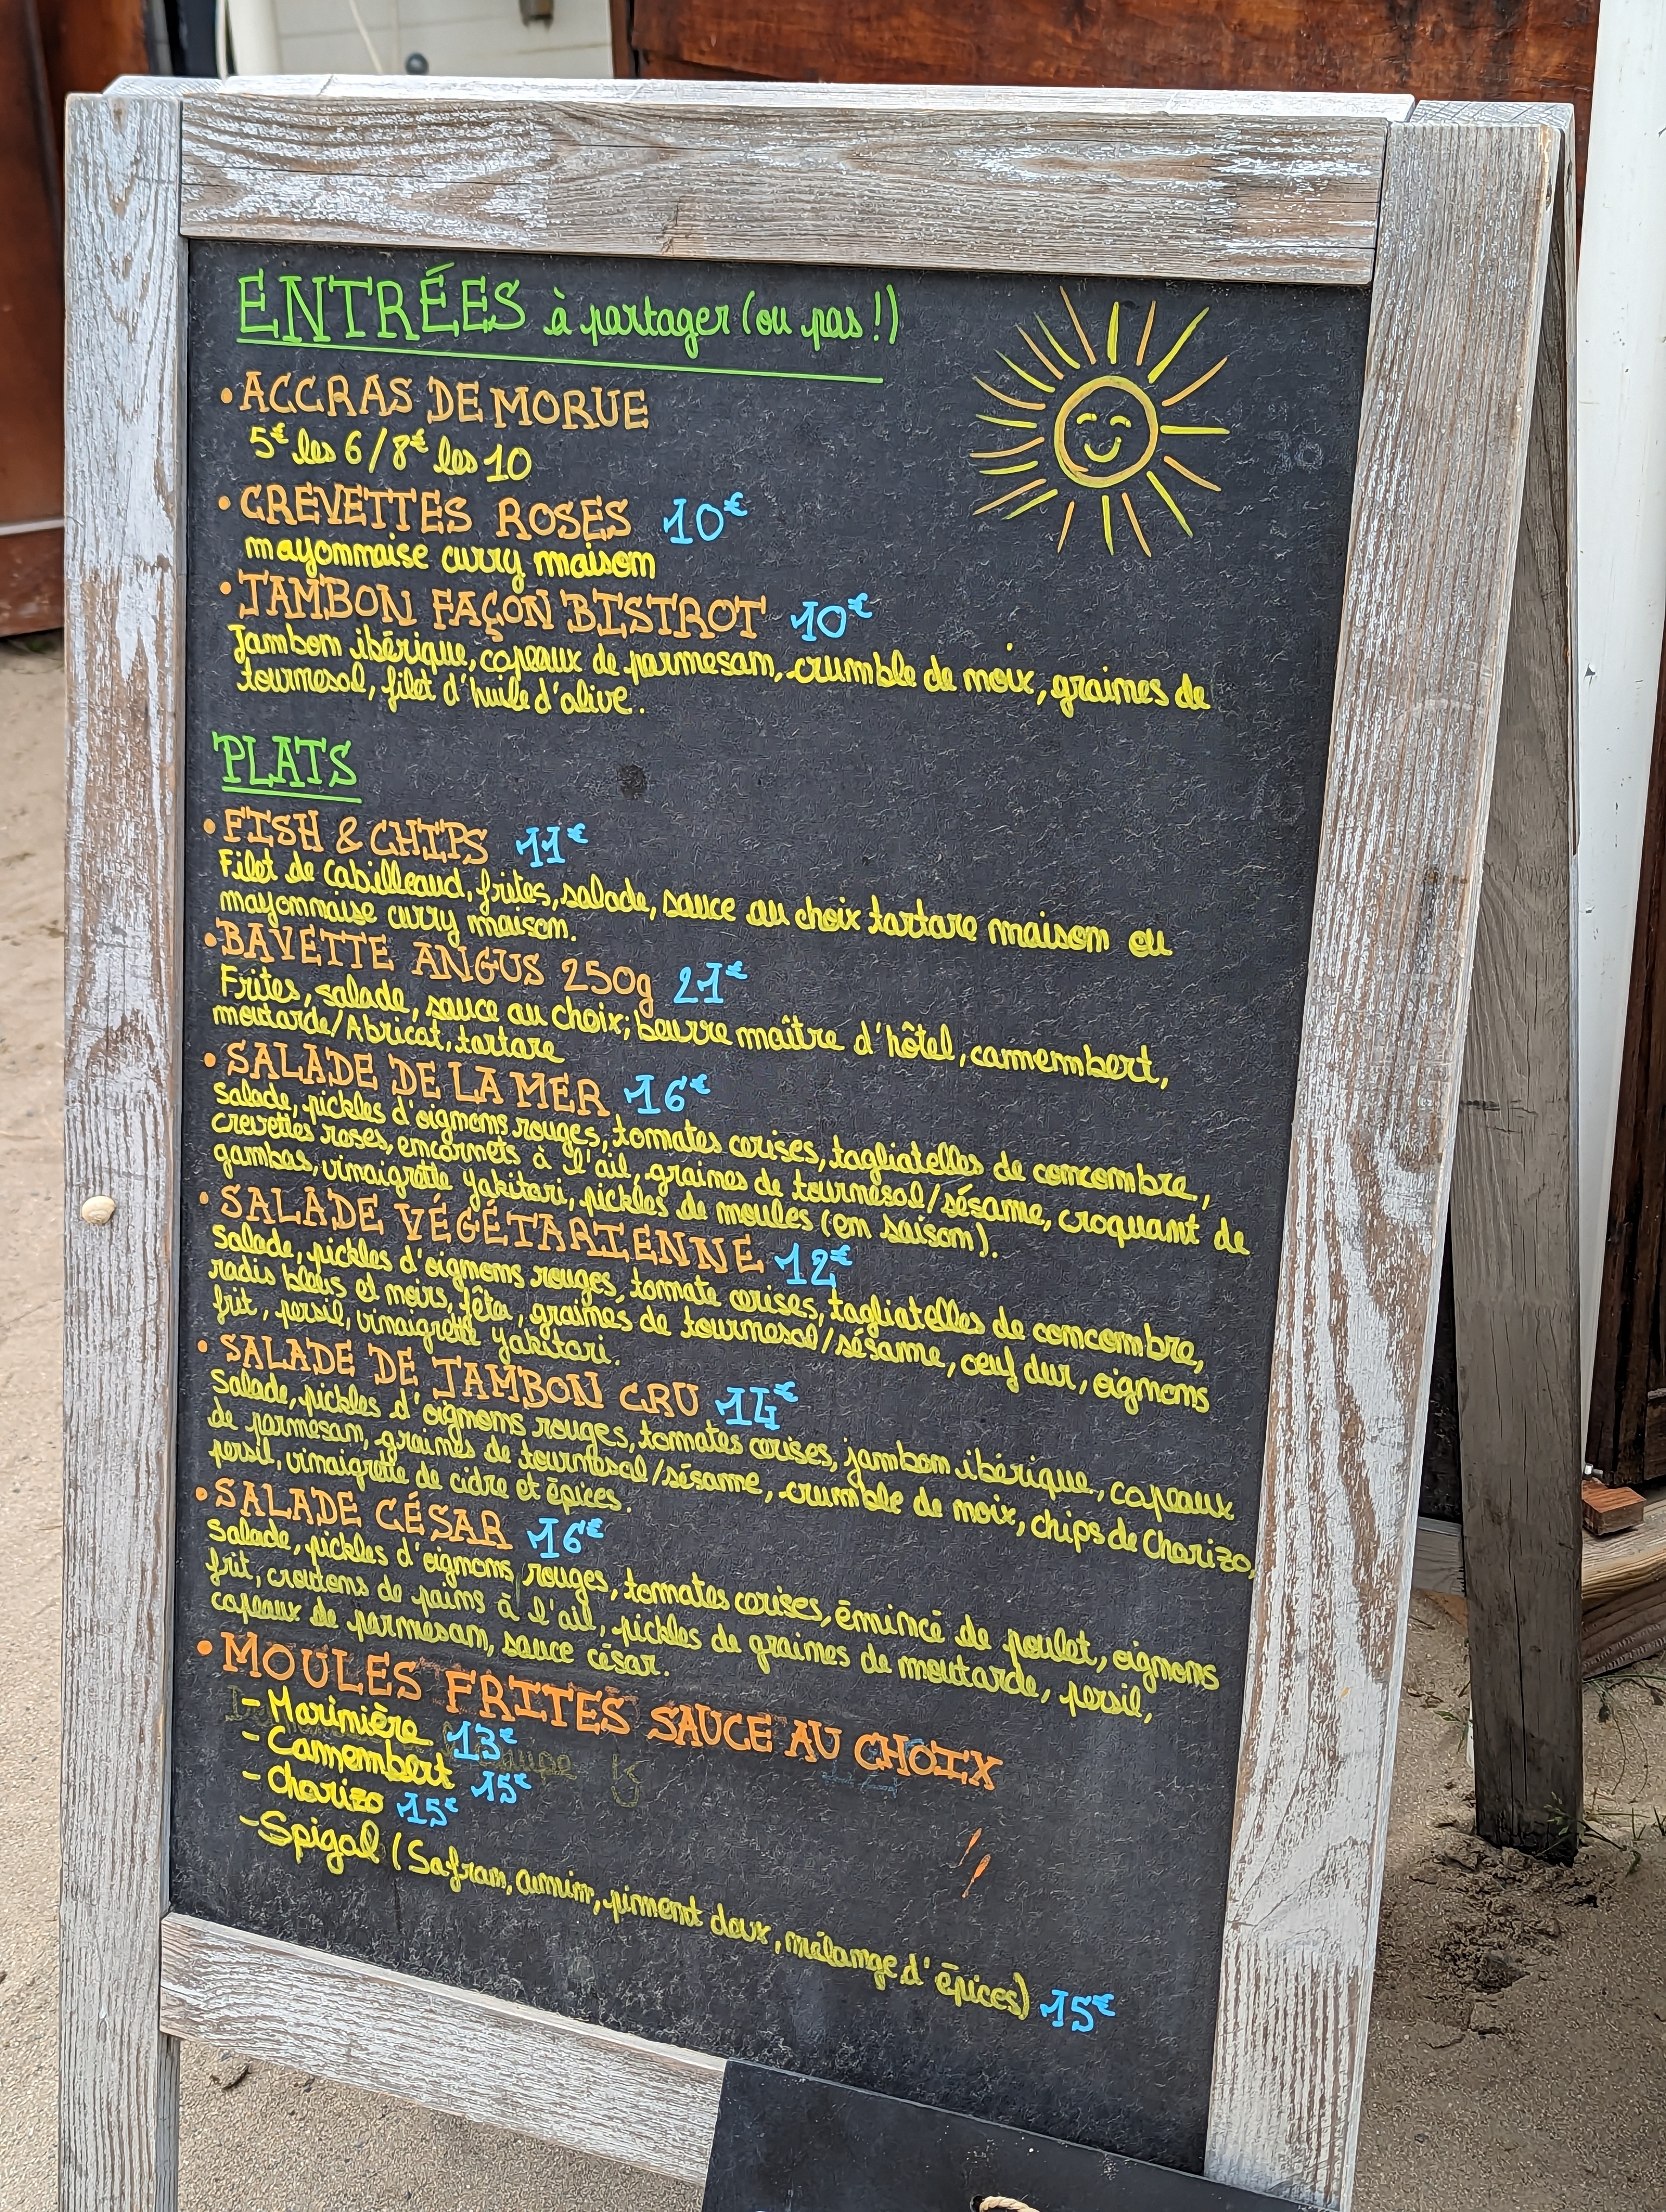 ENTRÉES à partager (ou pas !)
• ACCRAS DE MORUE
5€ les 6 / 8€ les 10
• CREVETTES ROSES 10€
mayonnaise curry maison
• JAMBON FAÇON BISTROT 10€
Jambon ibérique, copeaux de parmesan, crumble de noix, graines de
tournesol, filet d'huile d'olive.
PLATS
• FISH & CHIPS 11€
Filet de Cabilleaud, frites, salade, sauce au choix tartare maison ou
mayonnaise curry maison.
• BAVETTE ANGUS 250g 21€
Frites, salade, sauce au choix; beurre maître d'hôtel, camembert,
moutarde/Abricot, tartare
• SALADE DE LA MER 16€
Salade, pickles d'oignons rouges, tomates cerises, tagliatelles de concombre,
crevettes roses, encornets à l'ail, graines de tournesol/sésame, croquant de
gambas, vinaigrette yakitori, pickles de moules (en saison).
• SALADE VÉGÉTARIENNE 12€
Salade, pickles d'oignons rouges, tomate cerises, tagliatelles de concombre,
radis bleus et noirs, fêta, graines de tournesol/sésame, oeuf dur, oignons
frit, persil, vinaigrette yakitori.
• SALADE DE JAMBON CRU 14€
Salade, pickles d'oignons rouges, tomates cerises, jambon ibérique, copeaux
de parmesan, graines de tournesol/sésame, crumble de noix, chips de Chorizo,
persil, vinaigrette de cidre et épices.
• SALADE CÉSAR 16€
Salade, pickles d'oignons rouges, tomates cerises, émincé de poulet, oignons
frit, croutons de pains à l'ail, pickles de graines de moutarde, persil,
copeaux de parmesan, sauce césar.
• MOULES FRITES SAUCE AU CHOIX
- Marinière 13€
- Camembert 15€
- Chorizo 15€
- Spigol (Safran, cumin, piment doux, mélange d'épices) 15€